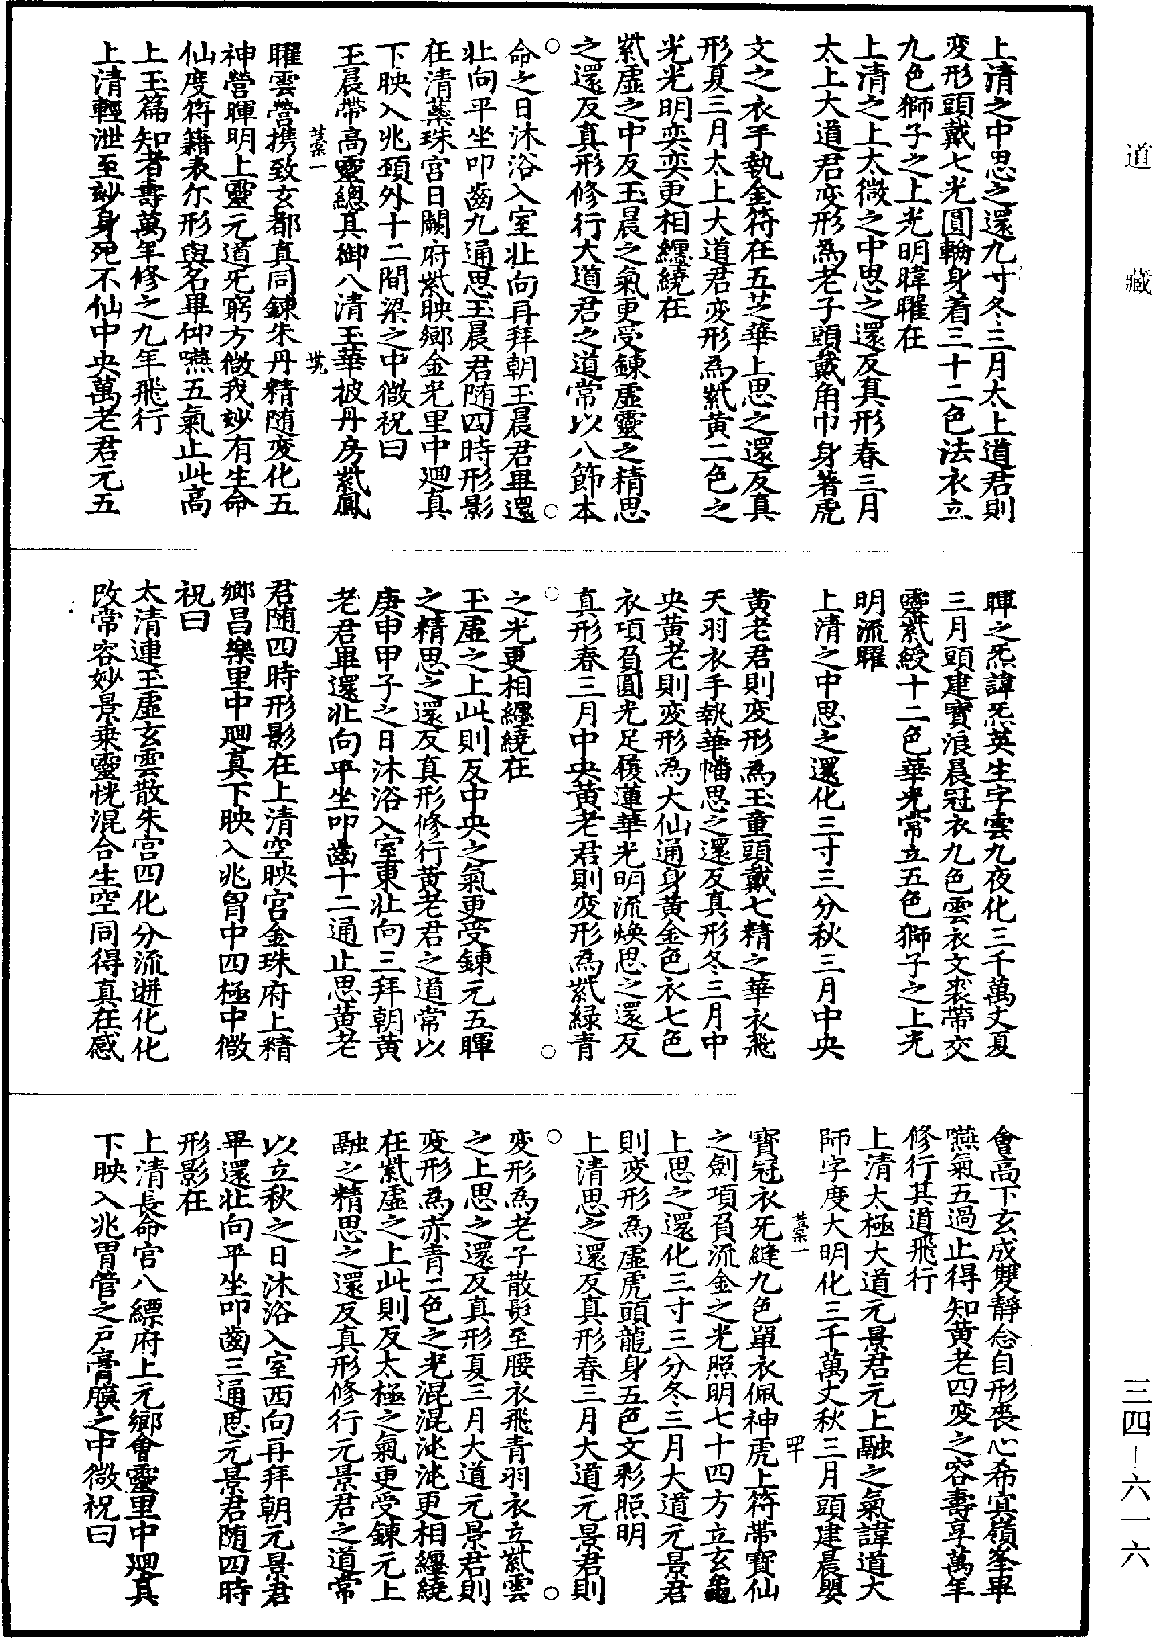 道藏
三四—六一六
上清之中思之還九寸冬三月太上道君則
変形頭戴七光圓輪身着三十二色法衣立
九色獅子之上光明暐曜在
上清之上太微之中思之還反真形春三月
太上大道君変形為老子頭戴角巾身著虎
文之衣手執金符在五芝華上思之還反真
形夏三月太上大道君変形為紫黄二色之
光光明奕奕更相纒繞在
紫虚之中反玉晨之氣更受鍊虚靈之精思
之還反真形修行大道君之道常以八節本
命之日沐浴入室北向再拜朝玉晨君畢還
北向平坐叩齒九通思玉晨君随四時形影
在清蘂珠宮日闕府紫映鄉金光里中廻真
下映入兆頚外十二間梁之中微祝曰
玉晨帶高靈總真御八清玉華披丹房紫鳳
曜雲營携致玄都真同鍊朱丹精随変化五
神營暉明上靈元道旡窮方徵我妙有生命
仙度符籍表尓形與名畢仰嚥五氣止此高
上玉篇知者壽萬年修之九年飛行
上清輕泄至妙身死不仙中央萬老君元五
暉之炁諱炁英生字雲九夜化三千萬丈夏
三月頭建寶浪晨冠衣九色雲衣文裘帶交
靈紫綬十二色華光常立五色獅子之上光
明流曜
上清之中思之還化三寸三分秋三月中央
黄老君則変形為玉童頭戴七精之華衣飛
天羽衣手執華幡思之還反真形冬三月中
央黄老則変形為大仙通身黄金色衣七色
衣項負圓光足履蓮華光明流煥思之還反
真形春三月中央黄老君則変形為紫緑青
之光更相纒繞在
玉虚之上此則反中央之氣更受鍊元五暉
之精思之還反真形修行黄老君之道常以
庚申甲子之日沐浴入室東北向三拜朝黄
老君畢還北向平坐叩齒十二通止思黄老
君随四時形影在上清空映宮金珠府上精
鄉昌樂里中廻真下映入兆胃中四極中微
祝曰
太清連玉虚玄雲散朱宮四化分流迸化化
改常容妙景乗靈恍混合生空同得真在感
會高下玄成雙静念自形喪心希寘嶺峯畢
嚥氣五過止得知黄老四変之容壽享萬年
修行其道飛行
上清太極大道元景君元上融之氣諱道大
師字度大明化三千萬丈秋三月頭建晨嬰
寶冠衣旡縫九色單衣佩神虎上符帶寶仙
之劍項負流金之光照明七十四方立玄龜
上思之還化三寸三分冬三月大道元景君
則変形為虚虎頭龍身五色文彩照明
上清思之還反真形春三月大道元景君則
変形為老子散髮至腰衣飛青羽衣立紫雲
之上思之還反真形夏三月大道元景君則
変形為赤青二色之光混混沌沌更相纒繞
在紫虚之上此則反太極之氣更受鍊元上
融之精思之還反真形修行元景君之道常
以立秋之日沐浴入室西向再拜朝元景君
畢還北向平坐叩齒三通思元景君随四時
形影在
上清長命宮八縹府上元鄉會靈里中廻真
下映入兆胃管之戶膏膜之中微祝曰